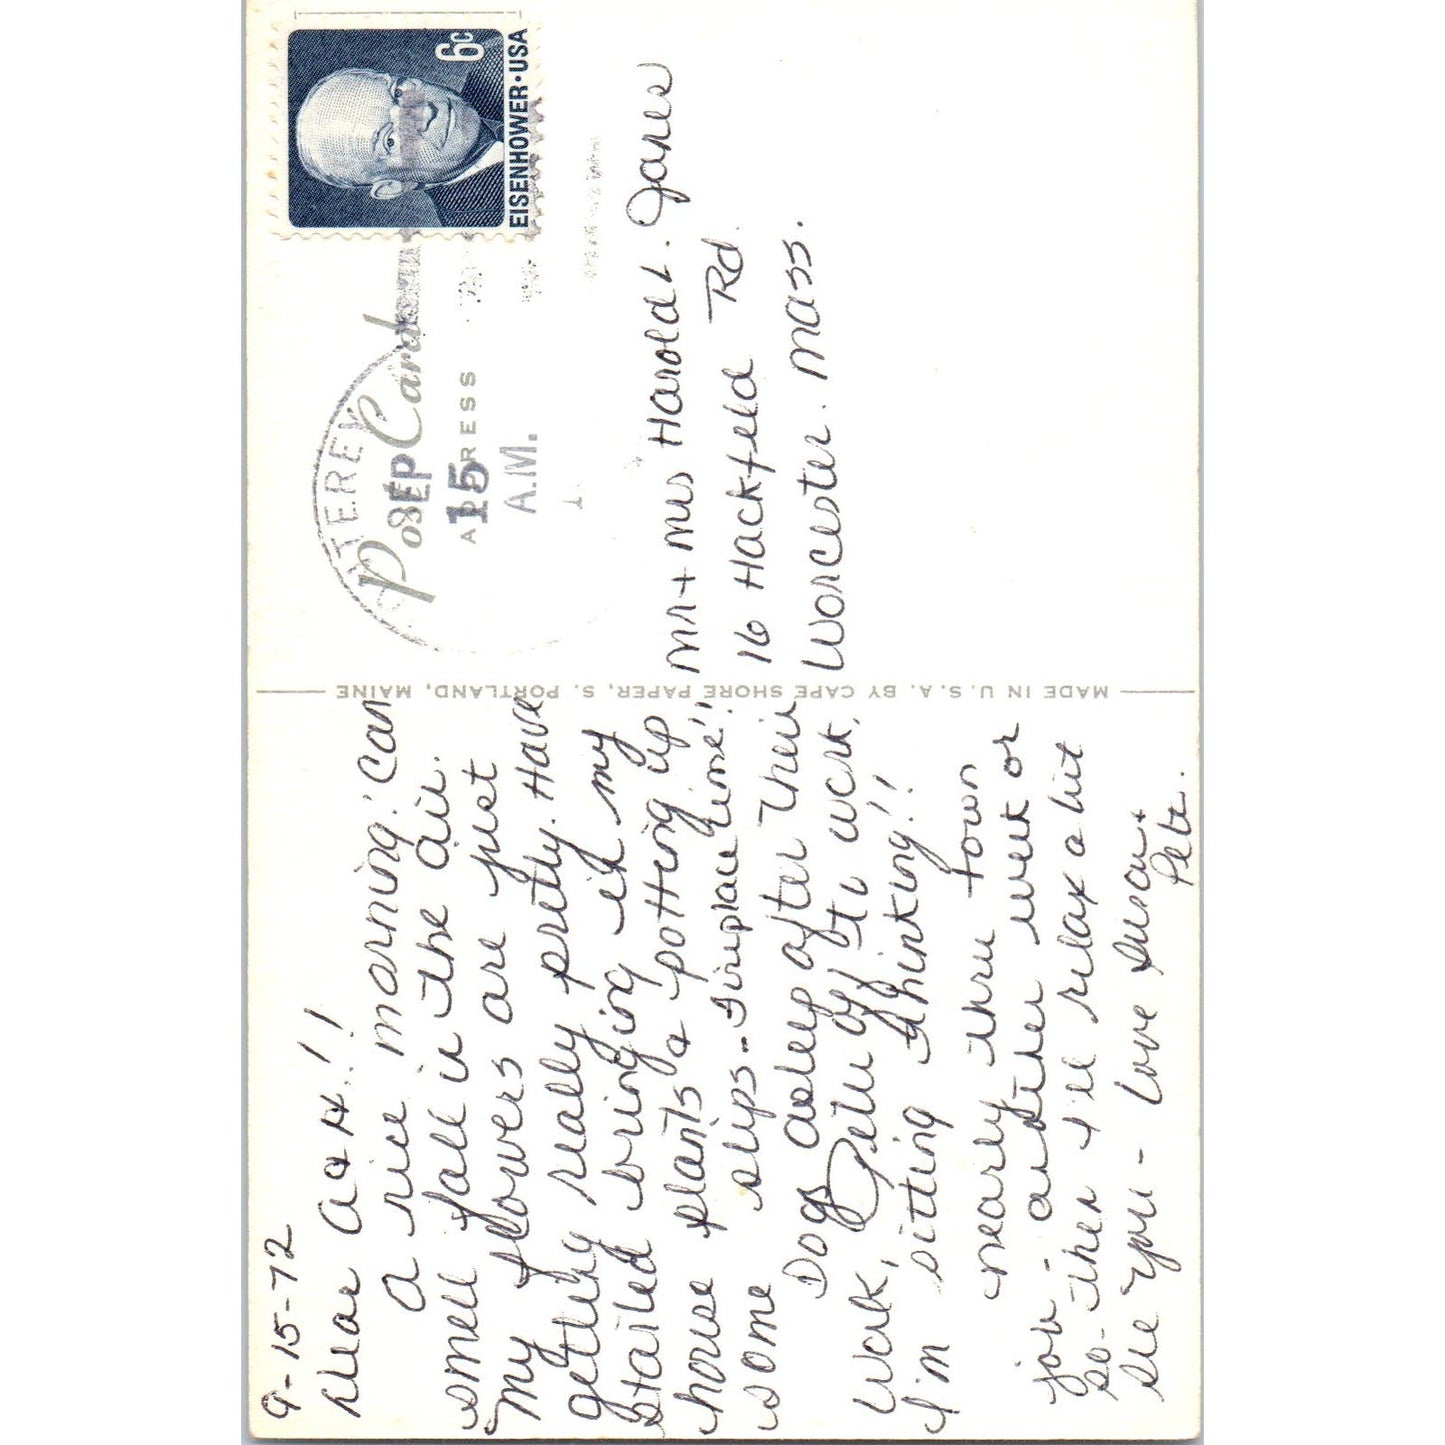 9-15-72
Dear A & H!!
A nice morning. Can
smell fall in the air.
My flowers are just
getting really pretty. Have
started bringing in my
house plants & potting up
some slips - Fireplace time"!
Dogs asleep after their
work, Peter off to work,
I'm sitting thinking!!
nearly thru town
job - another week or
so - then I'll relax a bit
See you - Love Susan +
Pete.
MADE IN U.S.A. BY CAPE SHORE PAPER, S. PORTLAND, MAINE
Post Card
ADDRESS
TEREY
SEP
15
A.M.
6c
EISENHOWER·USA
Mr + Mrs Harold. Jones
16 Hackfeld Rd.
Worcester. Mass.